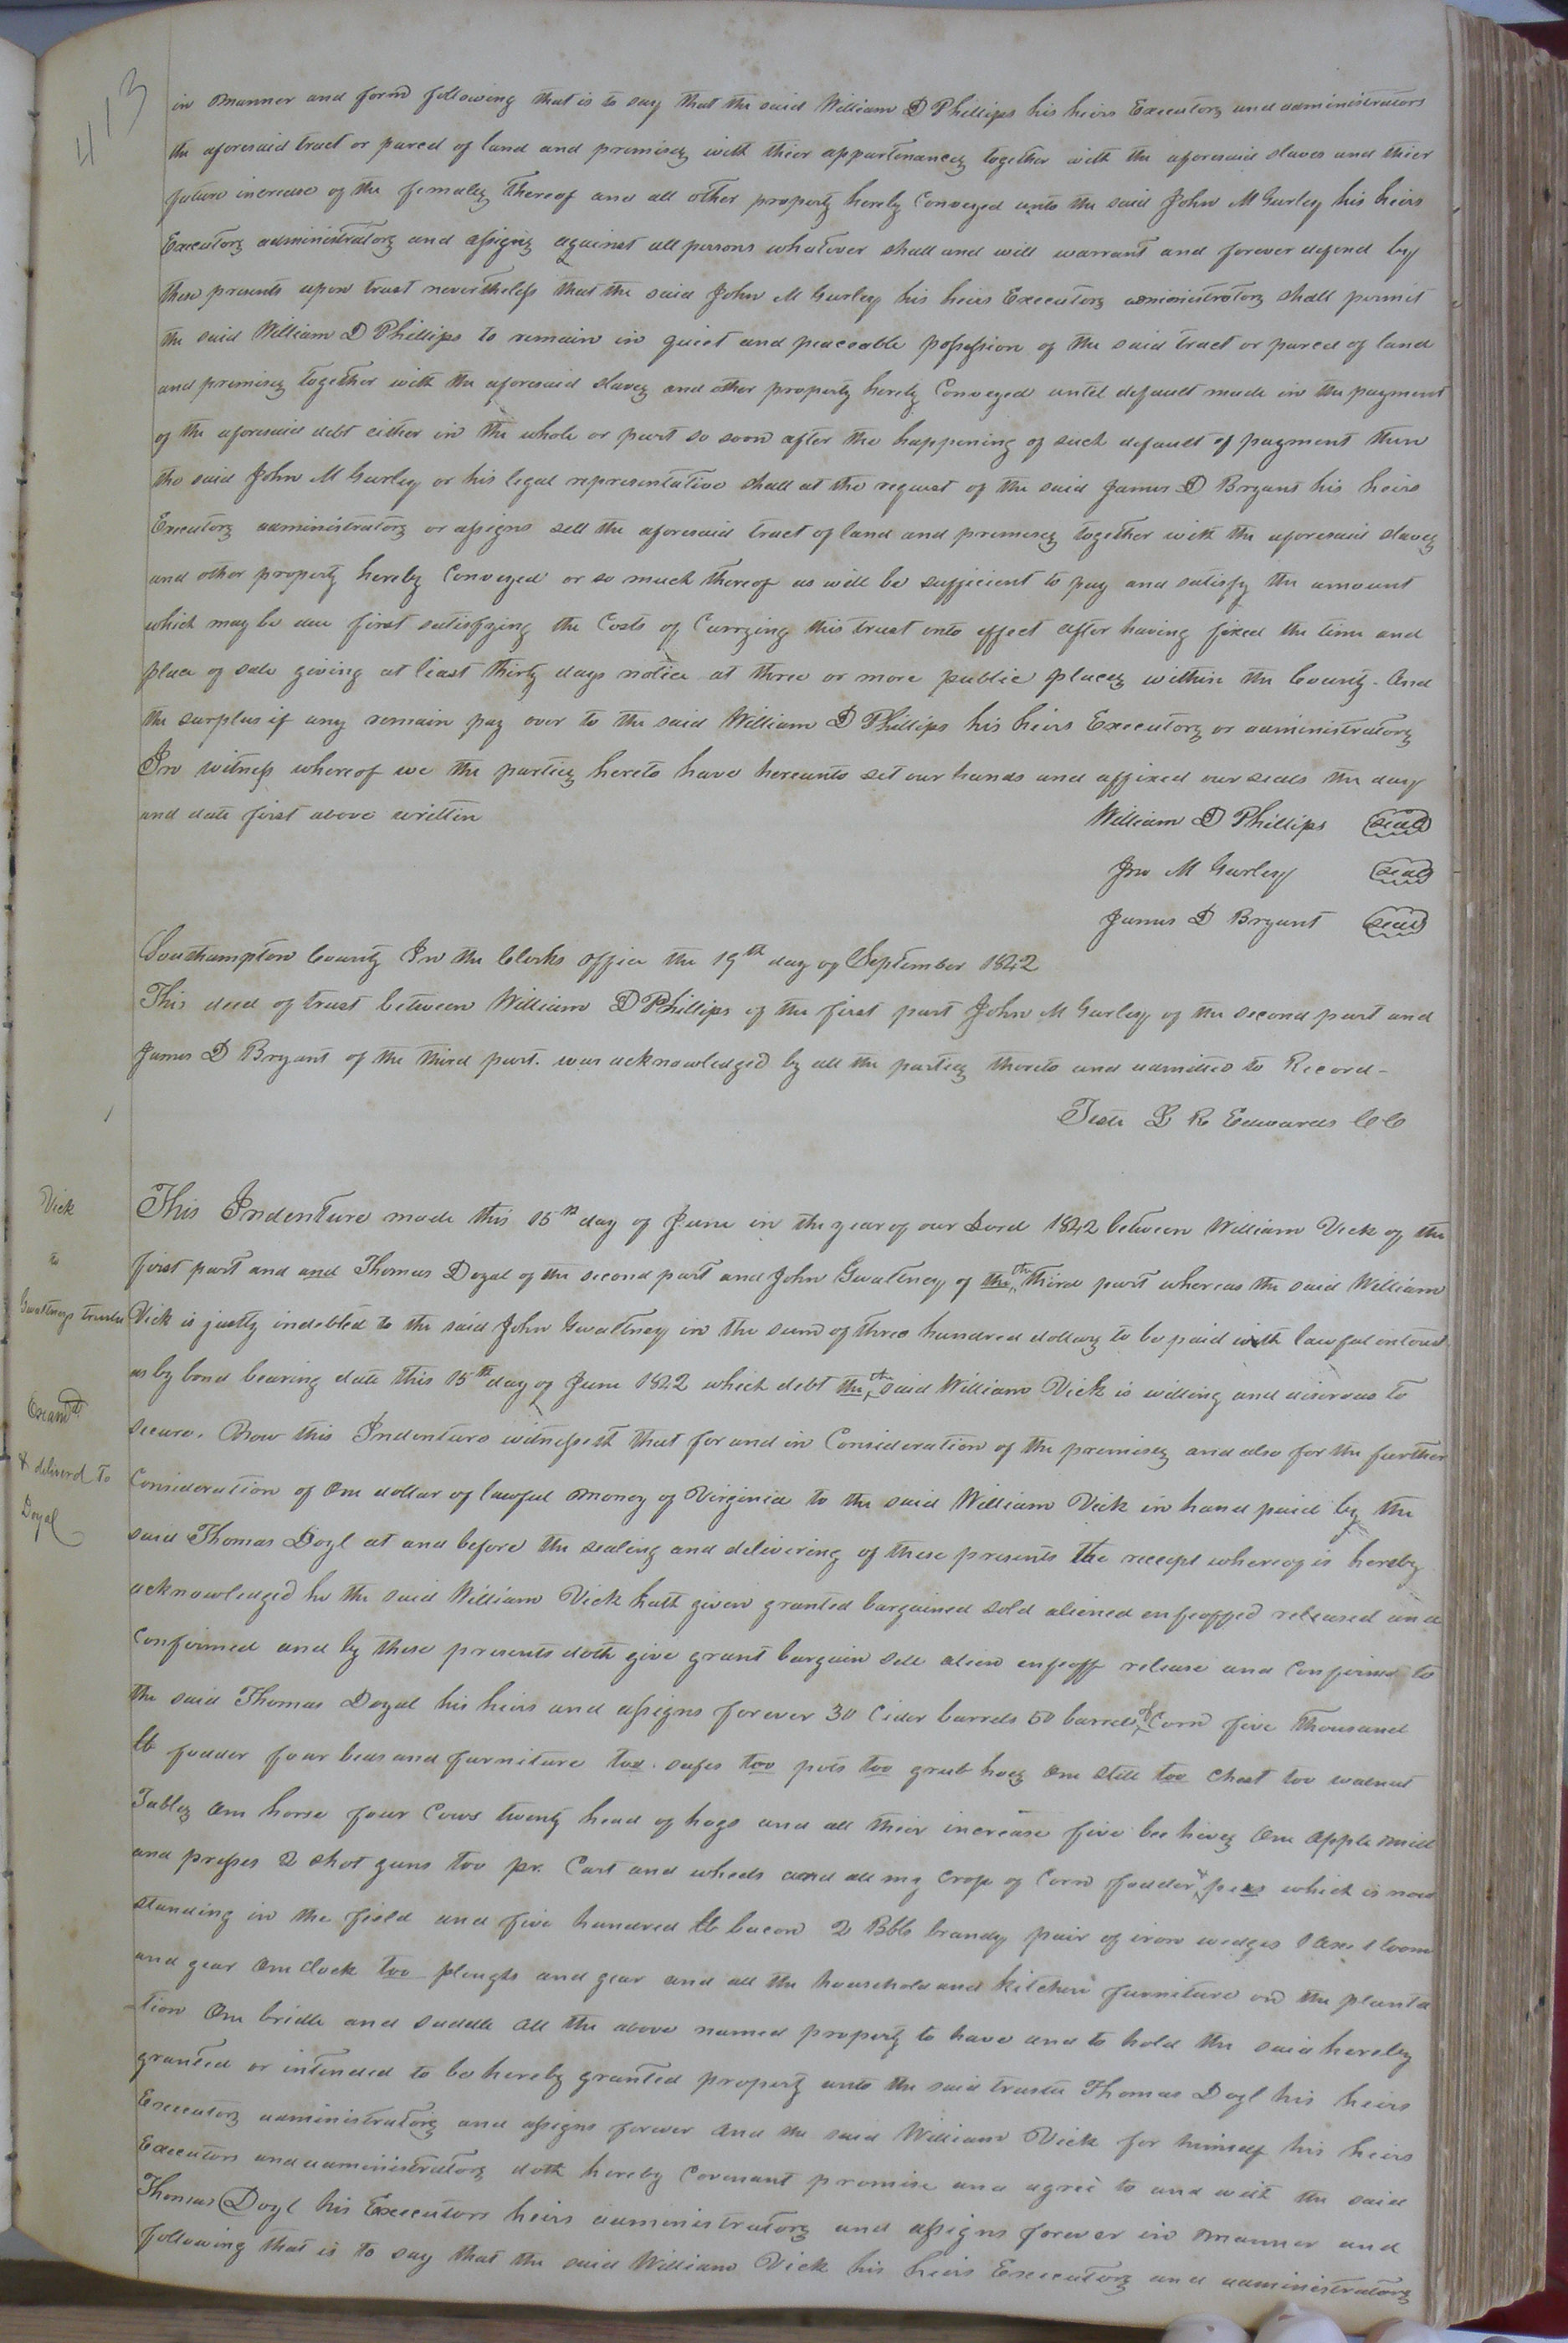 413
in manner and form following that is to say that the said William D Phillips his heirs Executors and administrators
the aforesaid tract or parcel of land and premises with thier appartenances together with the aforesaid slaves and thier
future increase of the females thereof and all other property hereby Conveyed unto the said John M Gurley his heirs
Executors administrators and assigns against all persons whatever shall and will warrant and forever defend by
these presents upon trust nevertheless that the said John M Gurley his heirs Executors administrators shall permit
the said William D Phillips to remain in quiet and peaceable possession of the said tract or parcel of land
and premises together with the aforesaid slaves and other property hereby Conveyed until default made in the payment
of the aforesaid debt either in the whole or part so soon after the happening of such default of payment then
the said John M Gurley or his legal representative shall at the request of the said James D Bryant his heirs
Executors administrators or assigns sell the aforesaid tract of land and premises together with the aforesaid slaves
and other property hereby Conveyed or so much thereof as will be sufficient to pay and satisfy the amount
which may be due first satisfying the Costs of Carrying this trust into effect after having fixed the time and
place of sale giving at least thirty days notice at three or more public places within the County. And
the surplus if any remain pay over to the said William D Phillips his heirs Executors or administrators
In witness whereof we the parties hereto have hereunto set our hands and affixed our seals the day
and date first above written
William D Phillips seal
Jno M Gurley seal
James D Bryant seal
Southampton County In the Clerks office the 19th day of September 1842
This deed of trust between William D Phillips of the first part John M Gurley of the second part and
James D Bryant of the third part. was acknowledged by all the parties thereto and admitted to Record -
Teste L R Edwards CC
Vick
to
Gwaltneys trustee
Examd
& deliverd to
Doyal
This Indenture made this 15th day of June in the year of our Lord 1842 between William Vick of the
first part and and Thomas Doyal of the second part and John Gwaltney of the the third part whereas the said William
Vick is justly indebted to the said John Gwaltney in the sum of three hundred dollars to be paid with lawful interest
as by bond bearing date this 15th day of June 1842 which debt the the said William Vick is willing and disirous to
secure. Now this Indenture witnesseth that for and in Consideration of the premises and also for the further
Consideration of One dollar of lawful money of Virginia to the said William Vick in hand paid by the
said Thomas Doyl at and before the sealing and delivering of these presents the receipt whereof is hereby
acknowledged he the said William Vick hath given granted bargained sold aliened enfeoffed released and
Confirmed and by these presents doth give grant bargain sell alien enfeoff release and Confirmed to
the said Thomas Doyal his heirs and assigns forever 30 Cider barrels 50 barrels of Corn five thousand
lb fodder four beds and furniture too safes too pots too grub hoes One still too Chest too walnut
Tables One horse four Cows twenty head of hogs and all their increase five bee hives One Apple mill
and presses 2 shot guns too pr. Cart and wheels and all my Crop of Corn fodder & peas which is now
standing in the field and five hundred lb bacon 2 Bbls brandy pair of iron wedges 1 Axe 1 loom
and gear One Clock too ploughs and gear and all the household and kitchen furniture on the planta
-tion One bridle and saddle All the above named property to have and to hold the said hereby
granted or intended to be hereby granted property unto the said trustee Thomas Doyl his heirs
Executors administrators and assigns forever And the said William Vick for himself his heirs
Executors and administrators doth hereby Covenant promise and agree to and with the said
Thomas Doyl his Executors heirs administrators and assigns forever in manner and
following that is to say that the said William Vick his heirs Executors and administrators